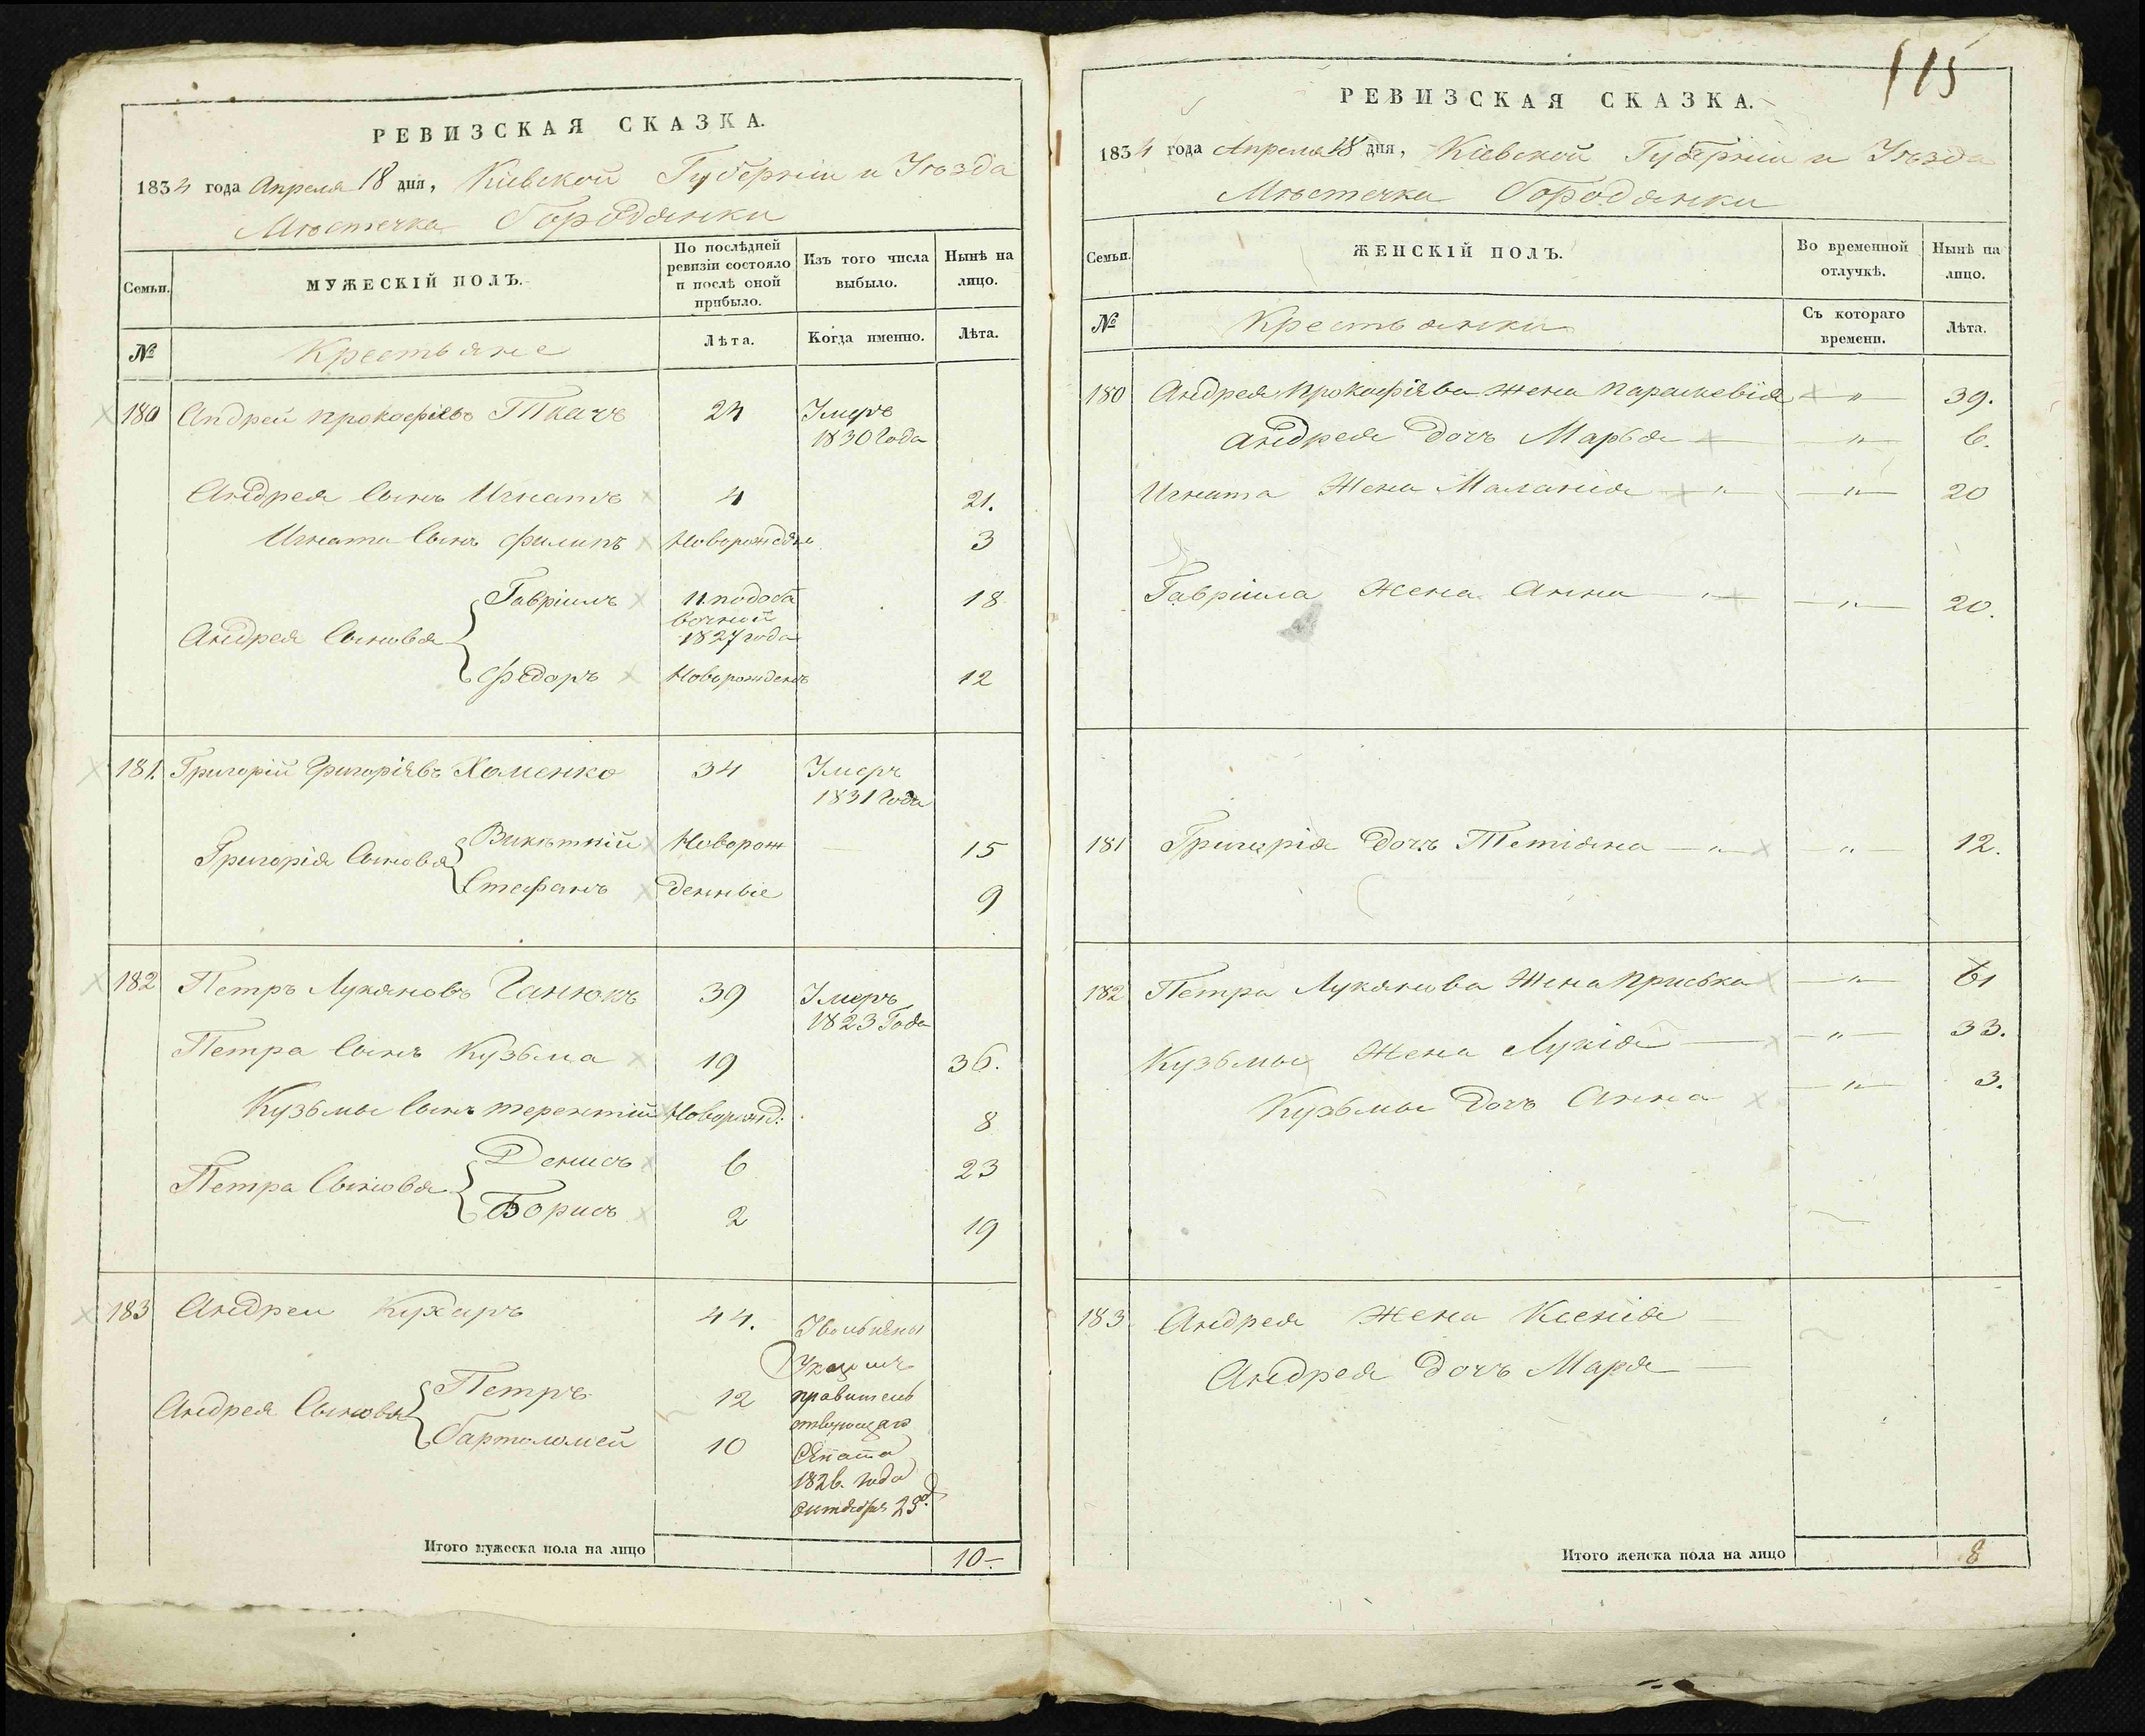 РЕВИЗСКАЯ СКАЗКА.
1834 года Апреля 18 дня, Кіевской Губерніи и Уѣзда
Мѣстечка Городянки
Семьи.
МУЖЕСКІЙ ПОЛЪ.
По послѣдней
ревизіи состояло
и послѣ оной
прибыло.
Изъ того числа
выбыло.
Нынѣ на
лицо.
№
Крестьяне
Лѣта.
Когда именно.
Лѣта.
180 Андрей Прокофіевъ Ткачъ 24 Умеръ
1830 Года
Андрея Сынъ Игнатъ 4 21.
Игната Сынъ Филипъ Новорожденъ 3
Андрея Сыновья
Гавріилъ 11. 18
1827 года
Федоръ Новорожденъ 12
181. Григорій Григоріевъ Хоменко 34 Умеръ
1831 Года
Григорія Сыновья
Викѣтній Новорож 15
Стефанъ денные 9
182 Петръ Лукяновъ Ганюкъ 39 Умеръ
1823 Года
Петра Сынъ Кузьма 19 36.
Кузьмы Сынъ Терентій Новорожд: 8
Петра Сыновья
Денисъ 6 23
Борисъ 2 19
183 Андреи Кухаръ 44. Увольнены
Указомъ
правитель
ствующаго
Сената
1826. года
Октября 23
Андрея Сыновья
Петръ 12
Вартоломей 10
Итого мужеска пола на лицо 10-
115
РЕВИЗСКАЯ СКАЗКА.
1834 года Апреля 18 дня, Кіевской Губерніи и Уѣзда
Мѣстечка Городянки
Семьи.
ЖЕНСКІЙ ПОЛЪ.
Во временной
отлучкѣ.
Нынѣ на
лицо.
№
Крестьянки
Съ котораго
времени.
Лѣта.
180 Андрея Прокофіева Жена Параскевія — „ — 39.
Андрея Дочь Марья — „ — 6.
Игната Жена Маланія — „ — „ — 20
Гавріила Жена Анна — „ — „ — 20.
181 Григорія Дочь Тетіяна — „ — „ — 12.
182 Петра Лукянова Жена Приська — „ — 61
Кузьмы Жена Лукія — „ — 33.
Кузьмы Дочь Анна — „ — 3.
183 Андрея Жена Ксенія —
Андрея Дочь Маря —
Итого женска пола на лицо 8